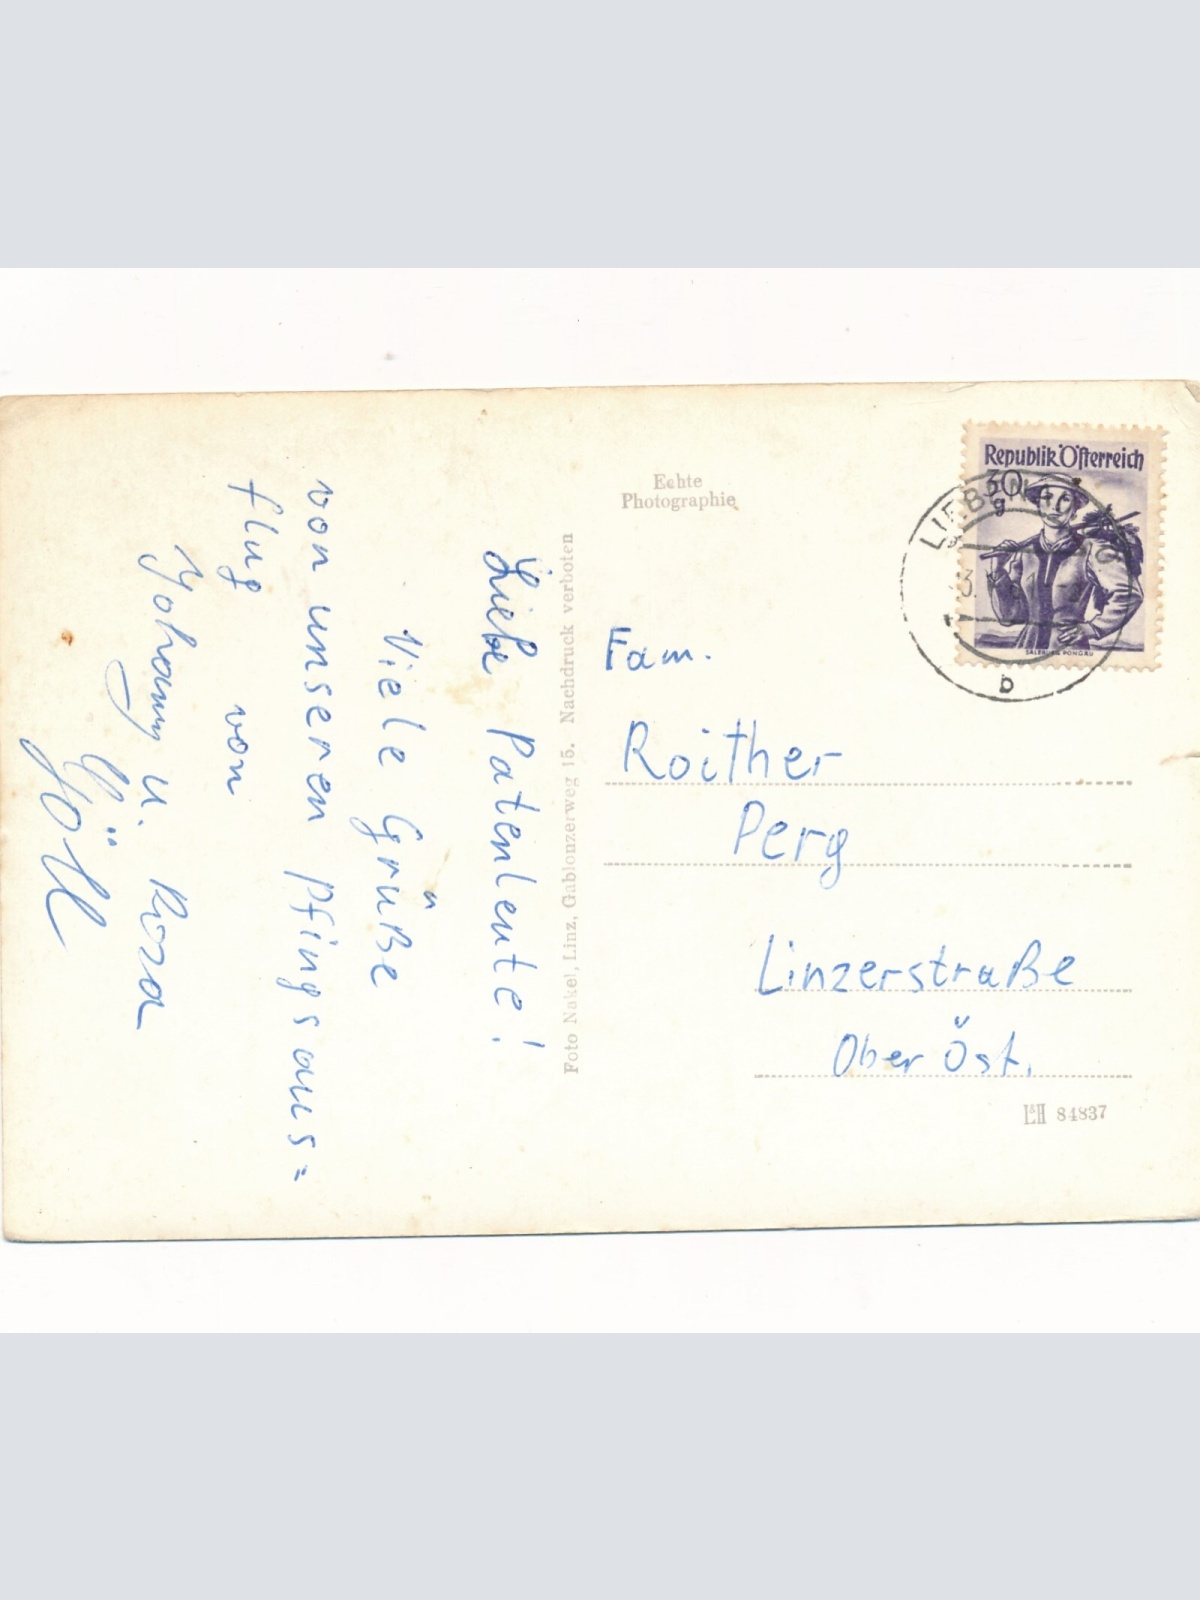 Liebe Patenleute!
Viele Grüße
von unseren Pfingsaus=
flug von
Johann u. Rosa
Göll
Foto Nakel, Linz, Gablonzerweg 15. Nachdruck verboten
Echte
Photographie
Republik Österreich
30
g
SALZBURG, PONGAU
b
Fam.
Roither
Perg
Linzerstraße
Ober Öst.
L&H 84837